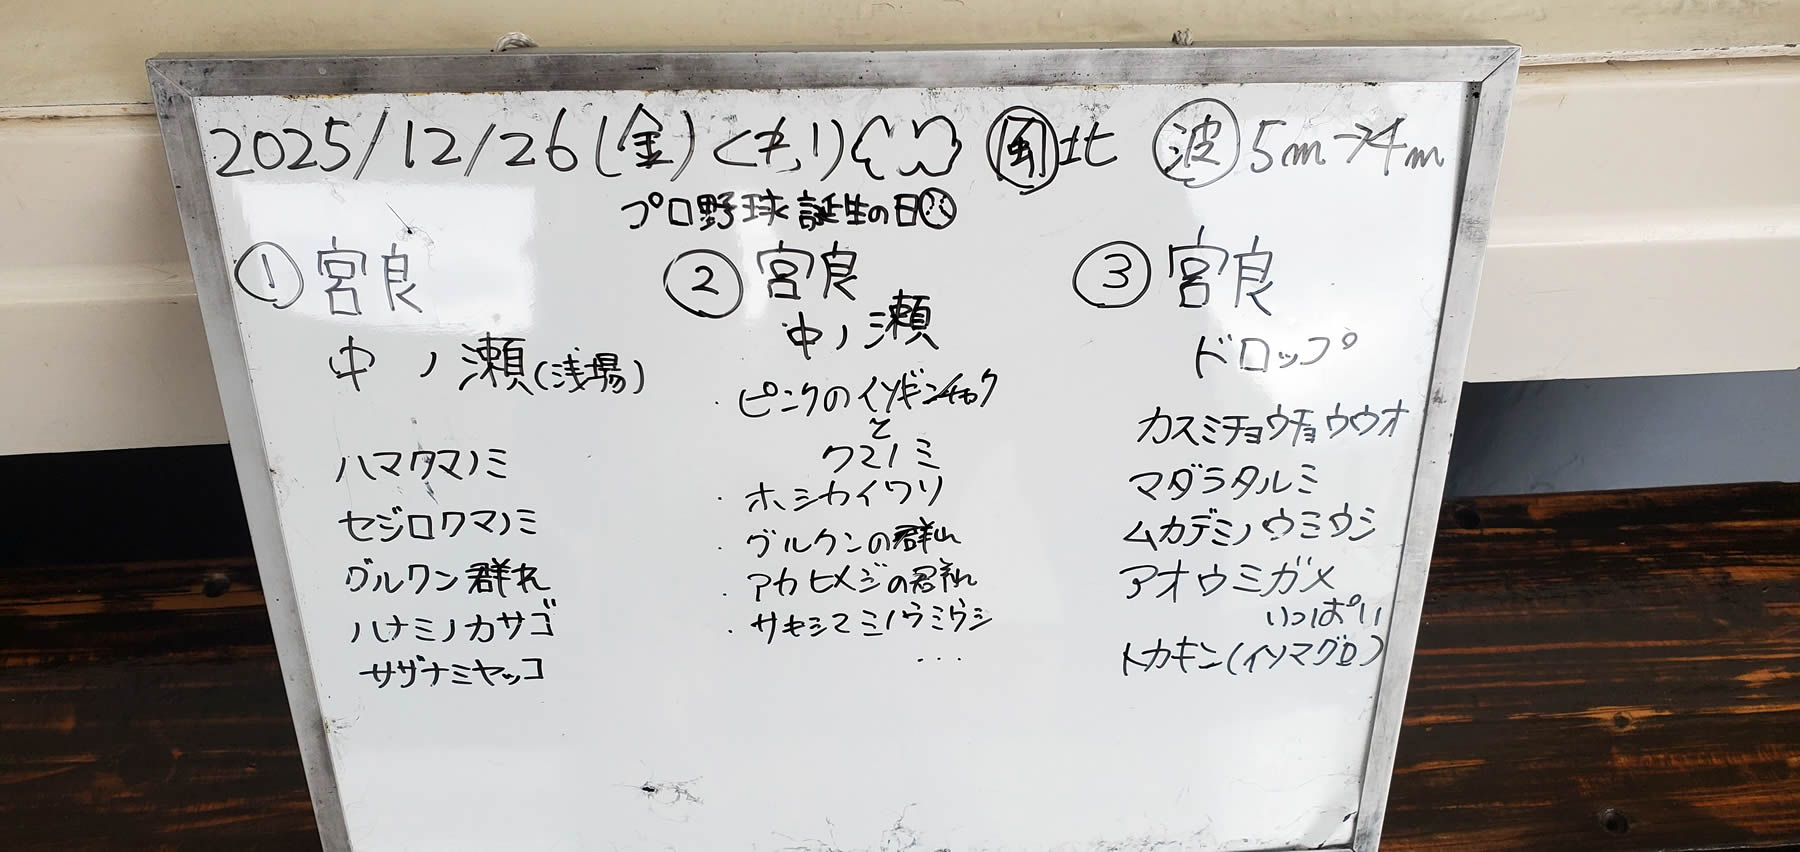 2025/12/26(金)くもり 風北 波5m→4m
プロ野球誕生の日
① 宮良
中ノ瀬(浅場)
ハマクマノミ
セジロクマノミ
グルクン群れ
ハナミノカサゴ
サザナミヤッコ
② 宮良
中ノ瀬
・ピンクのイソギンチャク
と
クマノミ
・ホシカイワリ
・グルクンの群れ
・アカヒメジの群れ
・サキシマミノウミウシ
...
③ 宮良
ドロップ
カスミチョウチョウウオ
マダラタルミ
ムカデミノウミウシ
アオウミガメ
いっぱい
トカキン(イソマグロ)